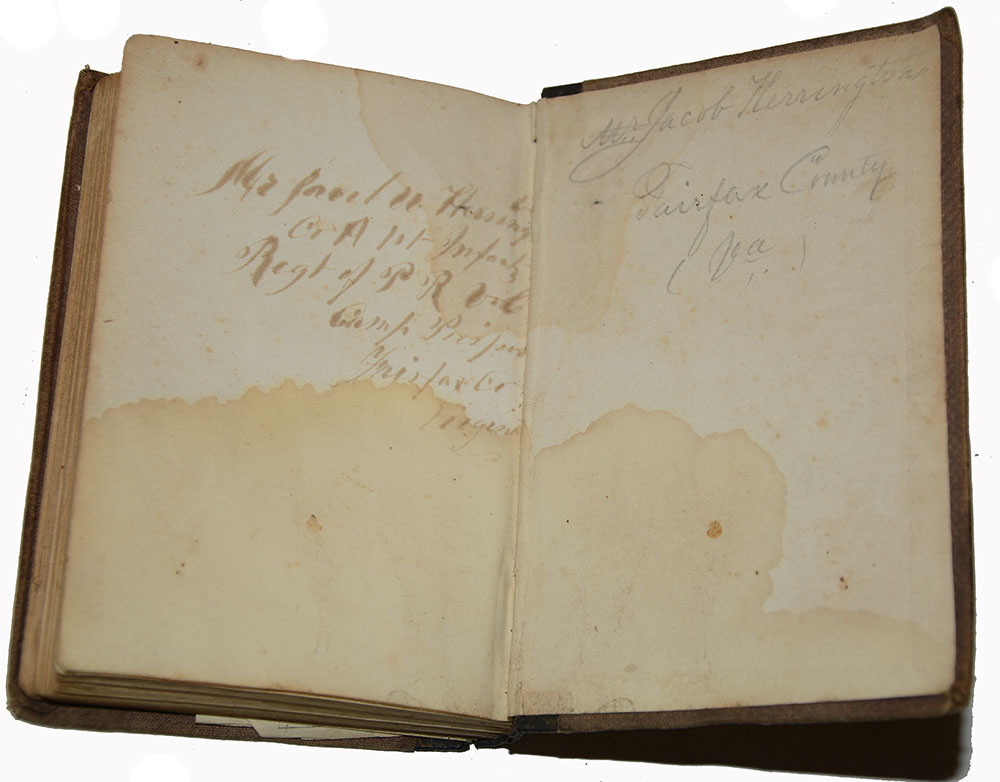 Mr Jacob W Herring
Co A 1st Infanty
Regt of P R Vol
Camp Peirpo
Fairfax Co
Virgini
Mr. Jacob Herrington
Fairfax County
(Va)